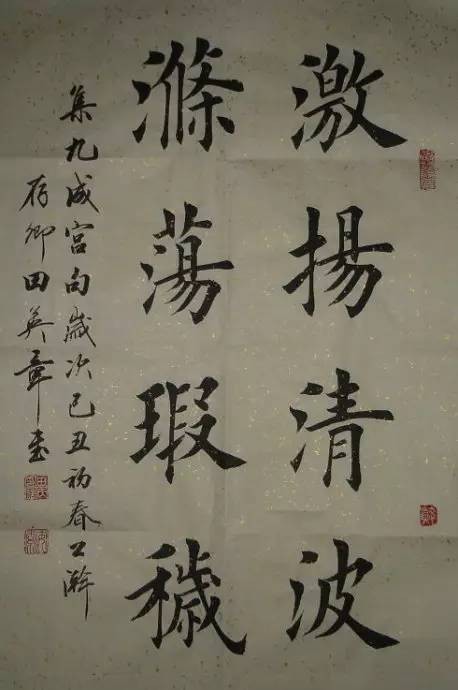 激揚清波
滌蕩瑕穢
集九成宮句歲次己丑初春公瀚
存卿田英章書